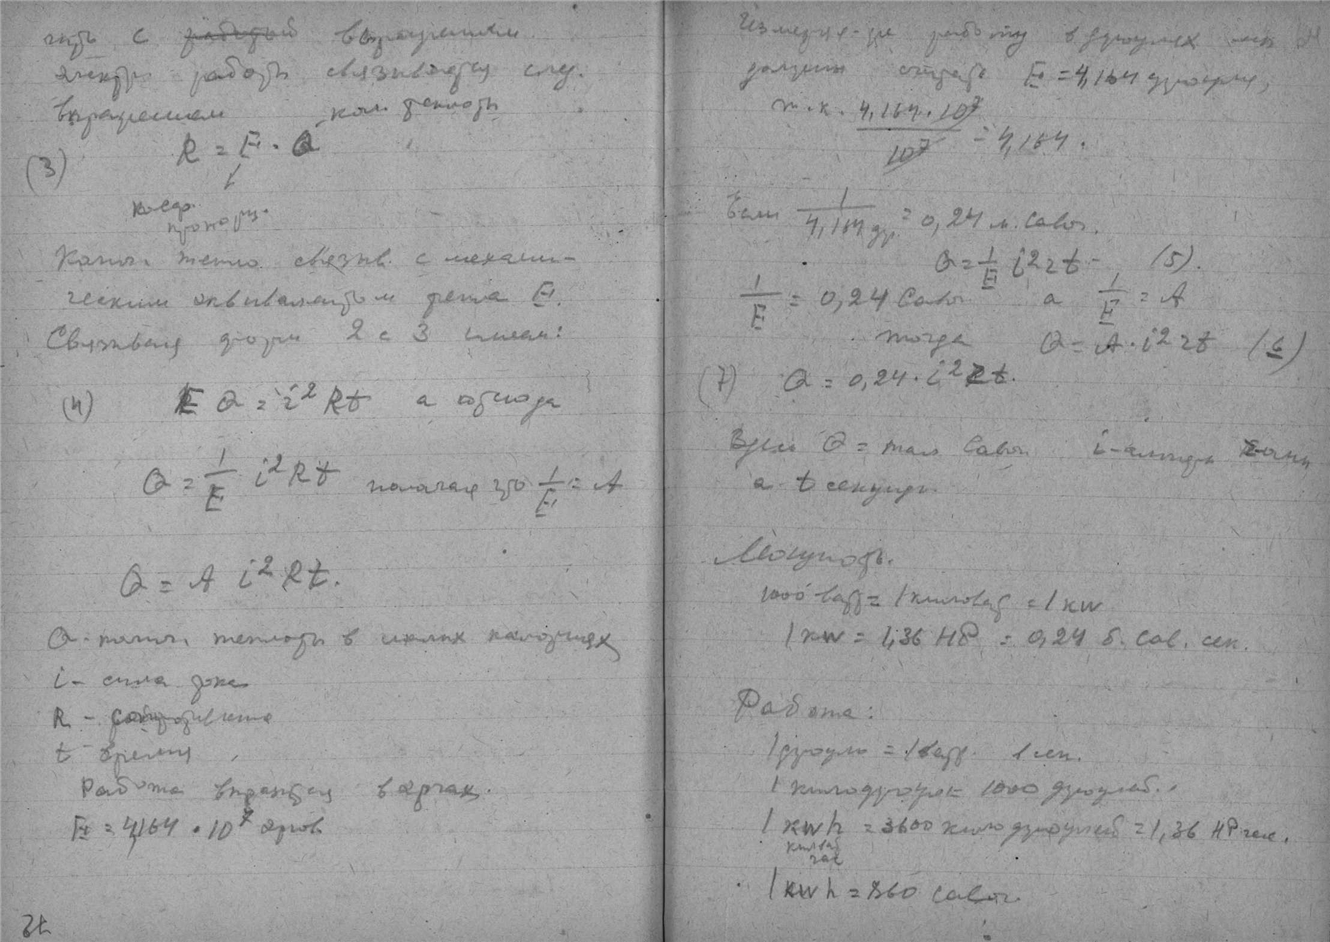 с работой выражением
электр. работы связывается след.
выражением кол. теплоты
(3) R = E · Q
коэф.
пропорц.
Колич. тепло. связыв. с механи-
ческим эквивалентом тепла E.
Связывая форм 2 с 3 имеем:
(4) E Q = i² Rt а отсюда
Q = 1/E i² Rt полагая что 1/E = A
Q = A i² Rt.
Q - колич. теплоты в малых калориях
i - сила тока
R - сопротивление
t время
Работа выражена в эргах.
E = 4,164 · 10⁷ эргов
работу в джоулях
должны считать E = 4,164 джоуля,
т.к. 4,164 · 10⁷ / 10⁷ = 4,164.
Если 1/4,164 дж = 0,24 м. calor.
Q = 1/E i² r t (5).
1/E = 0,24 Calor. а 1/E = A
тогда Q = A · i² r t (6)
(7) Q = 0,24 · i² Rt.
Здесь Q = мал. Calor. i - ампер
а t секунды
Мощность.
1000 ватт = 1 киловат = 1 kw
1 kw = 1,36 HP = 0,24 б. cal. сек.
Работа:
1 джоуль = 1 ватт. 1 сек.
1 килоджоуль 1000 джоулей.
1 kwh = 3600 килоджоулей = 1,36 HP час.
килват
час
1 kwh = 860 calor.